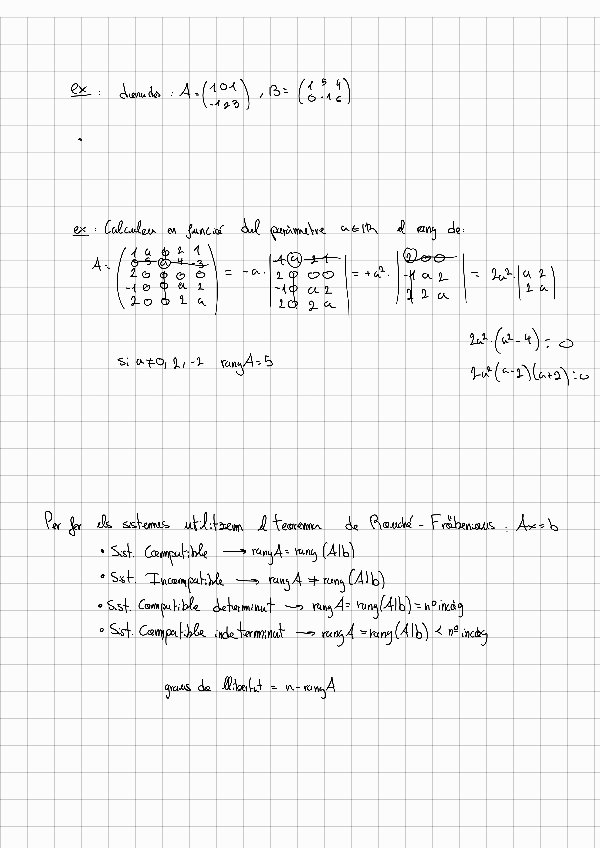 ex : donades : A = (1 0 1 / -1 2 3) , B = (1 5 4 / 0 -1 6)
ex : Calculeu en funció del paràmetre a∈ℝ el rang de:
A = (1 a 0 2 1 / 0 5 a 4 3 / 2 0 0 0 0 / -1 0 0 a 2 / 2 0 0 2 a) = -a · |1 a 2 1 / 2 0 0 0 / -1 0 a 2 / 2 0 2 a| = +a² · |2 0 0 / -1 a 2 / 2 2 a| = 2a² · |a 2 / 2 a|
2a² · (a² - 4) = 0
2a² (a-2) (a+2) = 0
si a ≠ 0, 2, -2 rang A = 5
Per fer els sistemes utilitzem el teorema de Rouché - Fröbenious : Ax = b
• Sist. Compatible → rang A = rang (A|b)
• Sist. Incompatible → rang A ≠ rang (A|b)
• Sist. Compatible determinat → rang A = rang (A|b) = nº incòg
• Sist. Compatible indeterminat → rang A = rang (A|b) < nº incòg
graus de llibertat = n - rang A